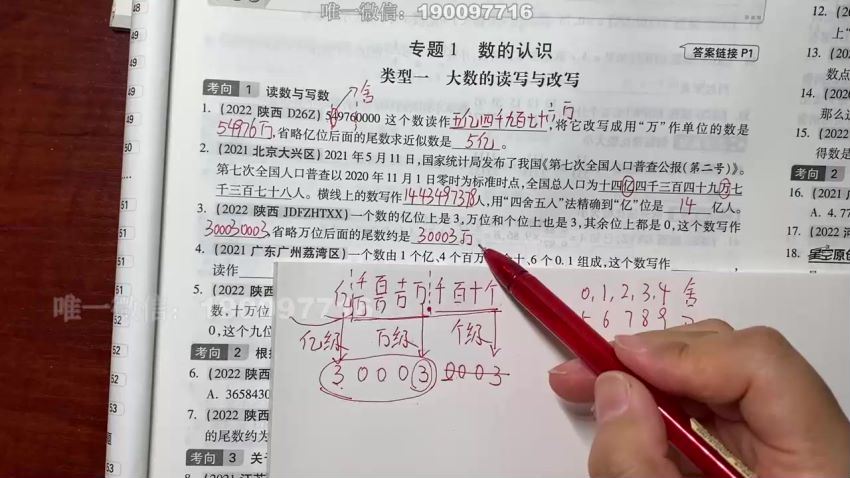 唯一微信：190097716
专题1 数的认识
答案链接 P1
类型一 大数的读写与改写
考向 1 读数与写数
舍
1.（2022 陕西 D26Z）549760000 这个数读作五亿四千九百七十六万,将它改写成用“万”作单位的数是
54976万,省略亿位后面的尾数求近似数是 5亿 。
2.（2021 北京大兴区）2021 年 5 月 11 日,国家统计局发布了我国《第七次全国人口普查公报(第二号)》。
第七次全国人口普查以 2020 年 11 月 1 日零时为标准时点,全国总人口为十四亿四千三百四十九万七
千三百七十八人。横线上的数写作1443497378人,用“四舍五入”法精确到“亿”位是 14 亿人。
3.（2022 陕西 JDFZHTXX）一个数的亿位上是 3,万位和个位上也是 3,其余位上都是 0,这个数写作
300030003,省略万位后面的尾数约是 30003万
4.（2021 广东广州荔湾区）一个数由 1 个亿、4 个百万 十、6 个 0.1 组成,这个数写作
读作
亿 千百十万 千百十个
万万万
亿级 万级 个级
3 0 0 0 3 0 0 0 3
0,1,2,3,4 舍
6 7 8 9
唯一微信：190097716
5.（2022 陕西
数,十万位
0,这个九位
考向 2 根
6.（2022 陕西
A. 3658430
7.（2022 陕西
的尾数约为
考向 3 关
8.（2021 江苏
12.
上“
13.
数点
14.（202
那么这
15.（2022
得数是
考向 2
16.（2021
A. 4.77
17.（2022 河
18. 星空原创
48
49
50
51
51
52
52
53
53